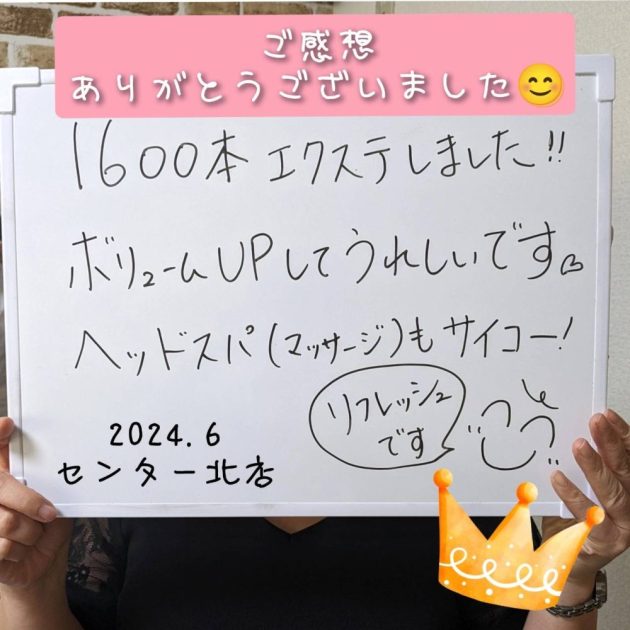 ご感想
ありがとうございました😊
1600本 エクステしました!!
ボリュームUPしてうれしいです♡
ヘッドスパ(マッサージ)もサイコー!
リフレッシュ
です
2024.6
センター北店